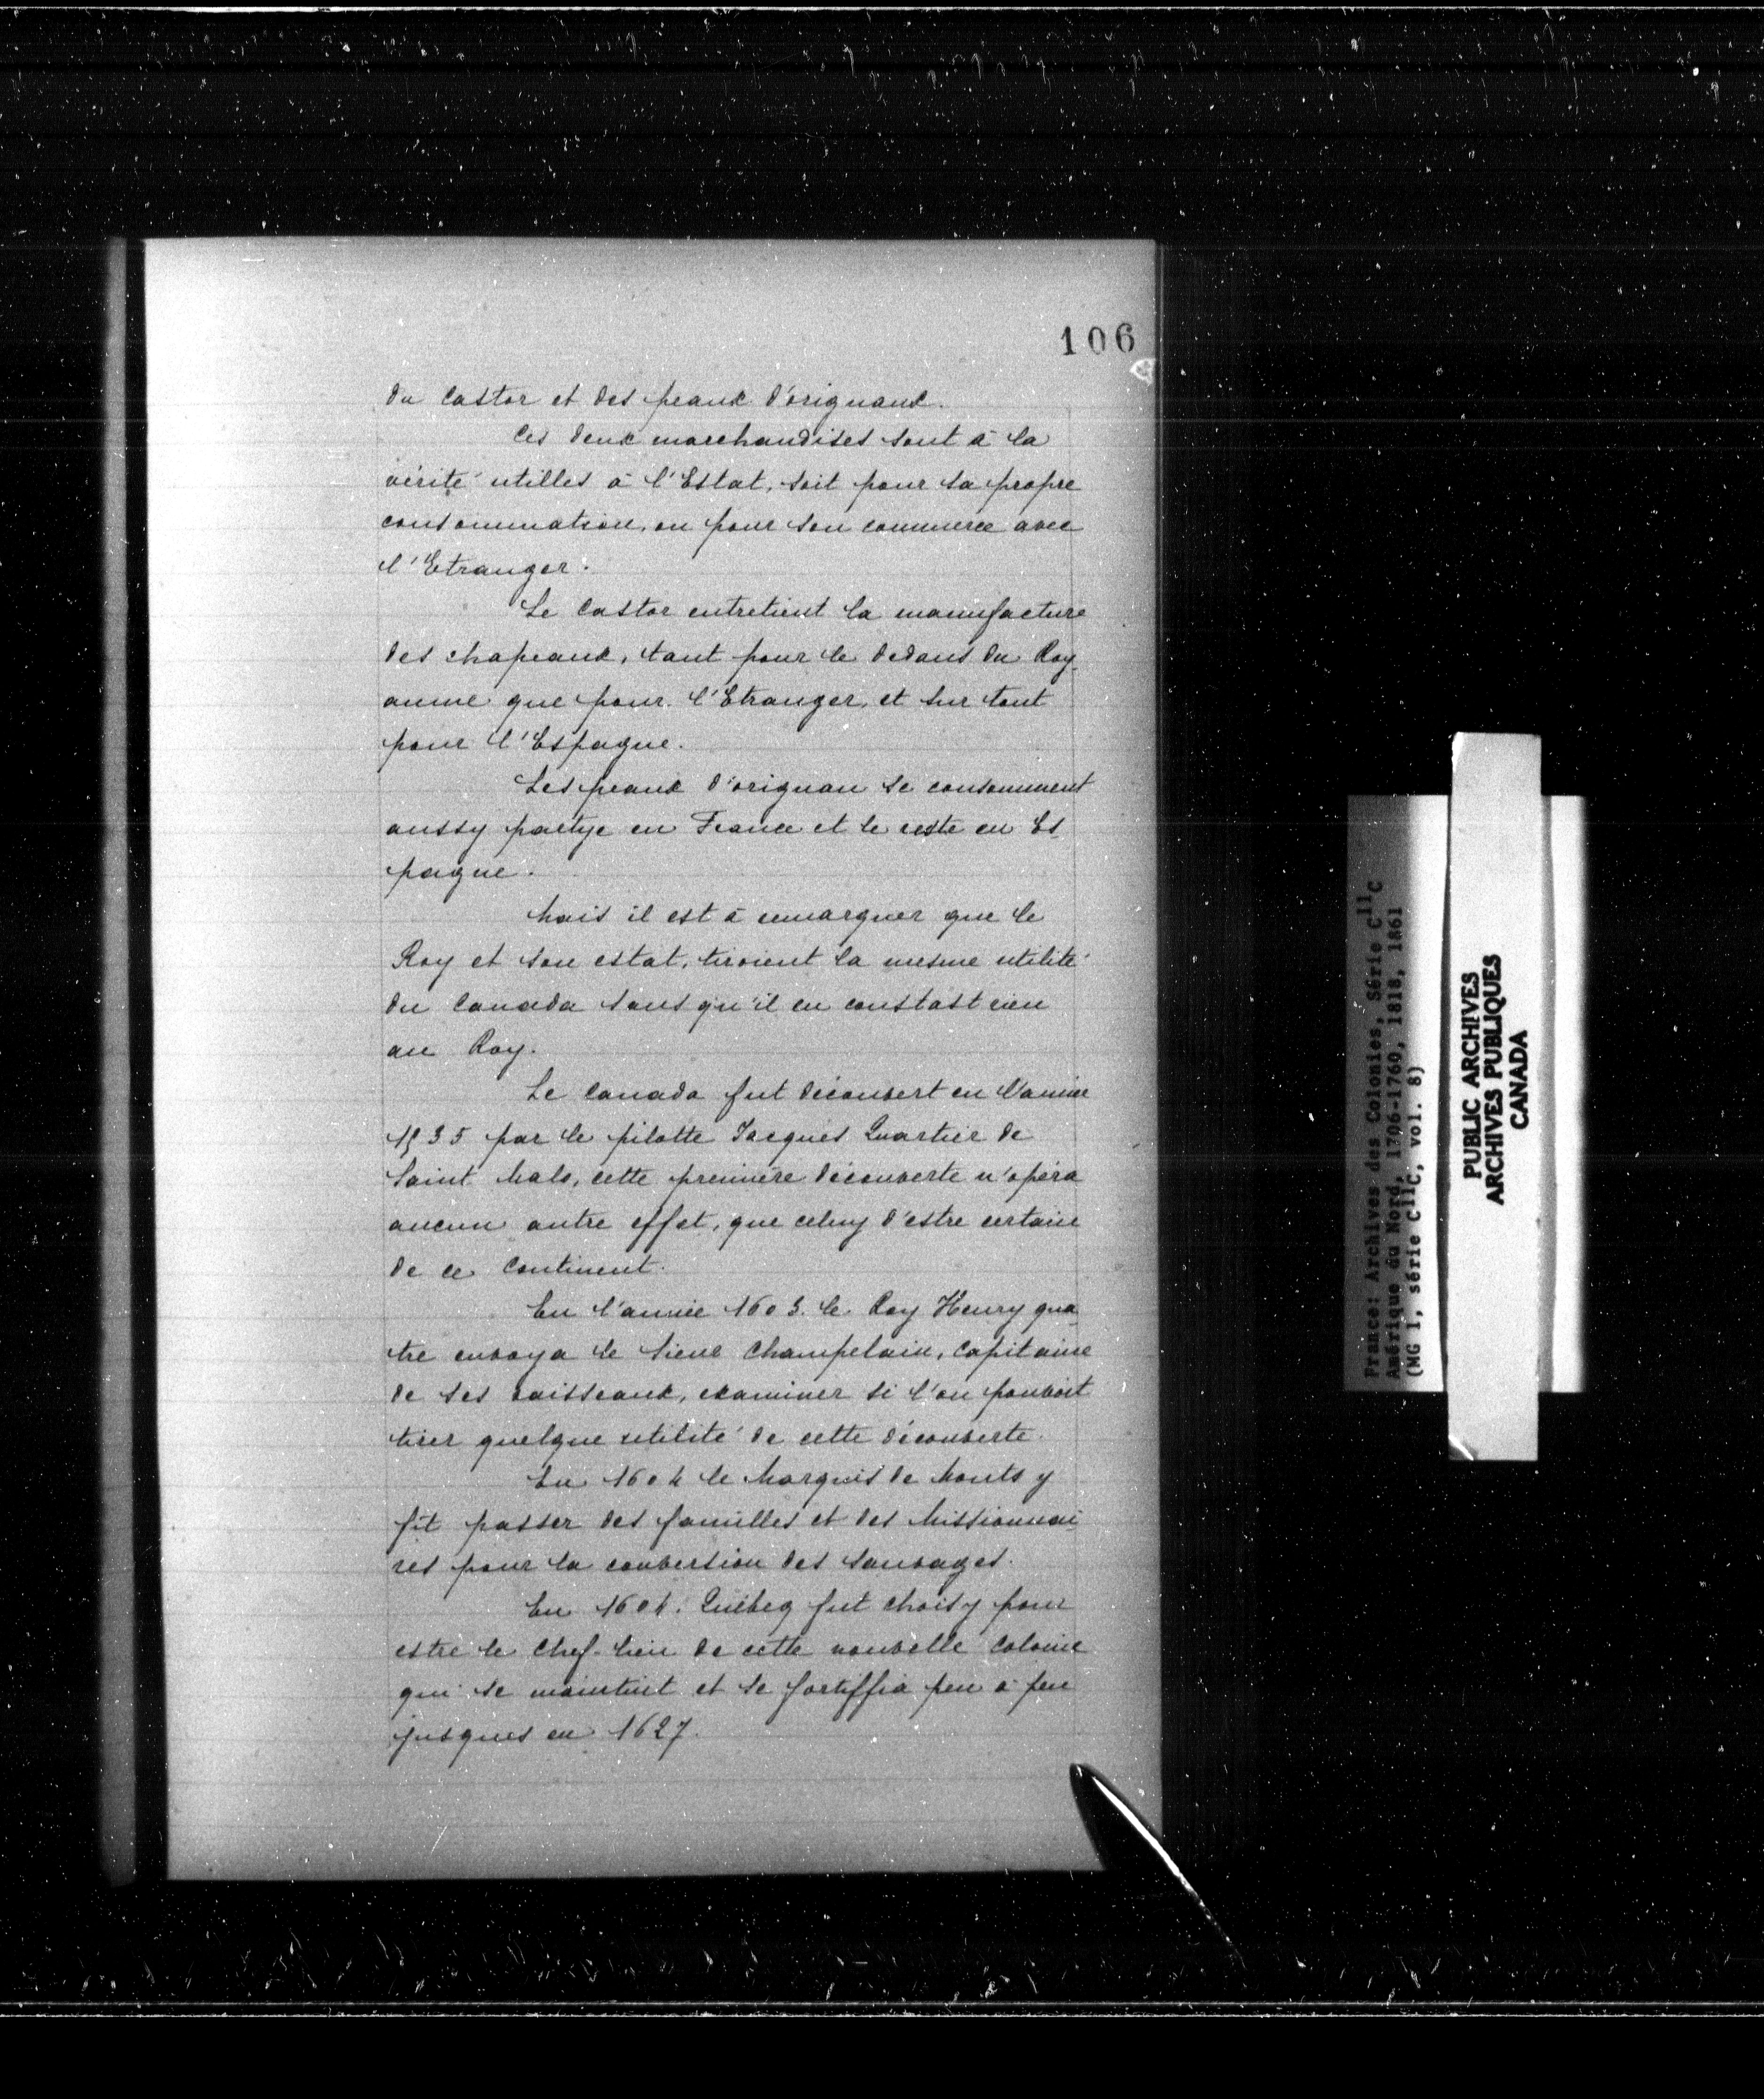 106
du Castor et des peaux d'orignaux.
Ces deux marchandises sont à la
vérité utilles à l'Estat, soit pour sa propre
consommation, ou pour son commerce avec
l'Etranger.
Le Castor entretient la manufacture
des chapeaux, tant pour le dedans du Roy-
aume que pour l'Etranger, et sur tout
pour l'Espagne.
Les peaux d'orignau se consomment
aussy partye en France et le reste en Es-
pagne.
Mais il est à remarquer que le
Roy et son estat, tiroient la mesme utilité
du Canada sans qu'il en coustast rien
au Roy.
Le Canada fut découvert en l'année
1535 par le pilotte Jacques Quartier de
Saint Malo, cette première découverte n'opéra
aucun autre effet, que celuy d'estre certain
de ce Continent.
En l'année 1603. le Roy Henry qua-
tre envoya le Sieur Champelain, Capitaine
de ses vaisseaux, examiner si l'on pouvoit
tirer quelque utilité de cette découverte.
En 1604 le Marquis de Monts y
fit passer des familles et des Missionnai-
res pour la convertion des Sauvages.
En 1604. Québeq fut choisy pour
estre le Chef-lieu de cette nouvelle Colonie
qui se maintint et se fortiffia peu à peu
jusques en 1627.
France: Archives des Colonies, Série C11C
Amérique du Nord, 1706-1760, 1818, 1861
(MG 1, série C11C, vol. 8)
PUBLIC ARCHIVES
ARCHIVES PUBLIQUES
CANADA